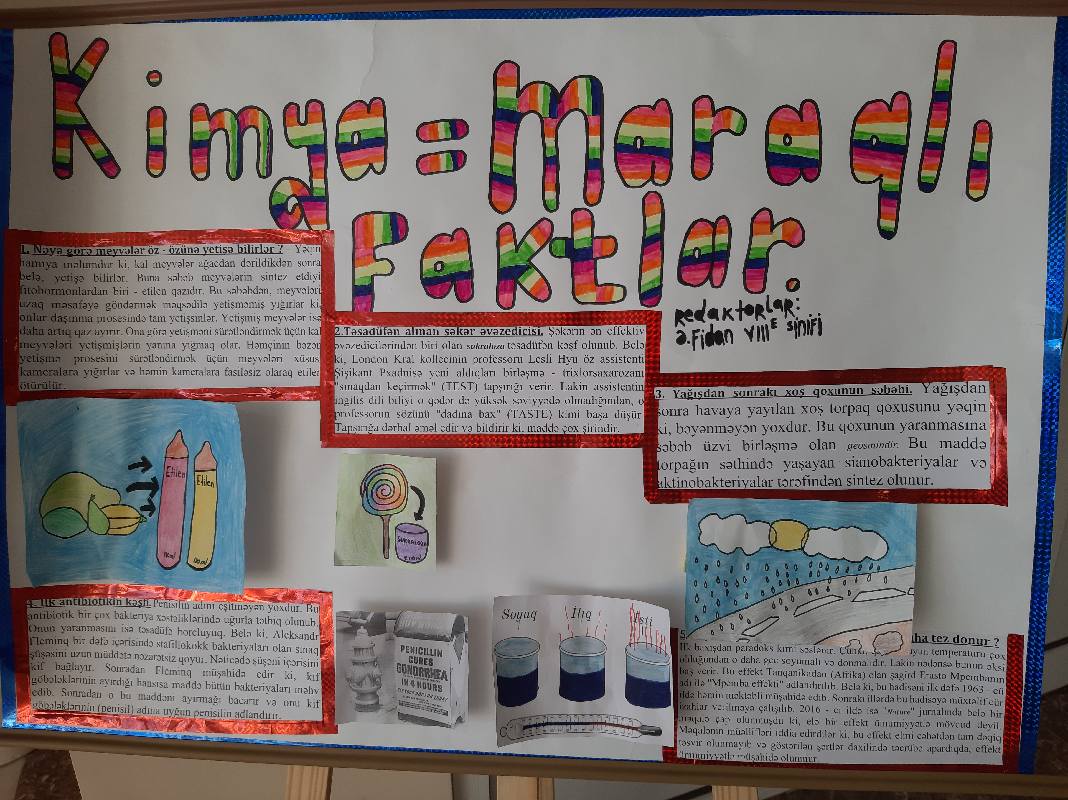 Kimya = Maraqlı
Faktlar.
Redaktorlar:
Ə.Fidan VIIIᴱ sinifi
1. Nəyə görə meyvələr öz - özünə yetişə bilirlər ? Yəqin
hamıya məlumdur ki, kal meyvələr ağacdan dərildikdən sonra
belə, yetişə bilirlər. Buna səbəb meyvələrin sintez etdiyi
fitohormonlardan biri - etilen qazıdır. Bu səbəbdən, meyvələri
uzaq məsafəyə göndərmək məqsədilə yetişməmiş yığırlar ki,
onlar daşınma prosesində tam yetişsinlər. Yetişmiş meyvələr isə
daha artıq qaz ayırır. Ona görə yetişməni sürətləndirmək üçün kal
meyvələri yetişmişlərin yanına yığmaq olar. Həmçinin bəzən
yetişmə prosesini sürətləndirmək üçün meyvələri xüsusi
kameralara yığırlar və həmin kameralara fasiləsiz olaraq etilen
ötürülür.
2.Təsadüfən alınan şəkər əvəzedicisi. Şəkərin ən effektiv
əvəzedicilərindən biri olan sukraloza təsadüfən kəşf olunub. Belə
ki, London Kral kollecinin professoru Lesli Hyu öz assistenti
Şişikant Pxadnisə yeni aldıqları birləşmə - trixlorsaxarozanı
"sınaqdan keçirmək" (TEST) tapşırığı verir. Lakin assistentin
ingilis dili biliyi o qədər də yüksək səviyyədə olmadığından, o
professorun sözünü "dadına bax" (TASTE) kimi başa düşür.
Tapşırığa dərhal əməl edir və bildirir ki, maddə çox şirindir.
3. Yağışdan sonrakı xoş qoxunun səbəbi. Yağışdan
sonra havaya yayılan xoş torpaq qoxusunu yəqin
ki, bəyənməyən yoxdur. Bu qoxunun yaranmasına
səbəb üzvi birləşmə olan geosmindir. Bu maddə
torpağın səthində yaşayan sianobakteriyalar və
aktinobakteriyalar tərəfindən sintez olunur.
Etilen
Etilen
SUKRALOZA
4. İlk antibiotikin kəşfi. Penisilin adını eşitməyən yoxdur. Bu
antibiotik bir çox bakteriya xəstəliklərində uğurla tətbiq olunub.
Onun yaranması isə təsadüfə borcluyuq. Belə ki, Aleksandr
Fleminq bir dəfə içərisində stafilokokk bakteriyaları olan sınaq
şüşəsini uzun müddətə nəzarətsiz qoyur. Nəticədə şüşəni içərisini
kif bağlayır. Sonradan Fleminq müşahidə edir ki, kif
göbələklərinin ayırdığı hansısa maddə bütün bakteriyaları məhv
edib. Sonradan o bu maddəni ayırmağı bacarır və onu kif
göbələklərinin (penisil) adına uyğun penisilin adlandırır.
PENICILLIN
CURES
GONORRHEA
IN 4 HOURS
Soyuq İliq İsti
5. daha tez donur ?
İlk baxışdan paradoks kimi səslənir. temperaturu çox
olduğundan o daha gec soyumalı və donmalıdır. Lakin nədənsə bunun əksi
baş verir. Bu effekt Tanqanikadan (Afrika) olan şagird Erasto Mpembanın
adı ilə "Mpemba effekti" adlandırılıb. Belə ki, bu hadisəni ilk dəfə 1963 - cü
ildə həmin məktəbli müşahidə edib. Sonrakı illərdə bu hadisəyə müxtəlif cür
izahlar verilməyə çalışılıb. 2016 - cı ildə isə jurnalında belə bir
məqalə çap olunmuşdu ki, elə bir effekt ümumiyyətlə mövcud deyil.
Məqalənin müəllifləri iddia edirdilər ki, bu effekt elmi cəhətdən tam dəqiq
təsvir olunmayıb və göstərilən şərtlər daxilində təcrübə apardıqda, effekt
ümumiyyətlə müşahidə olunmur.